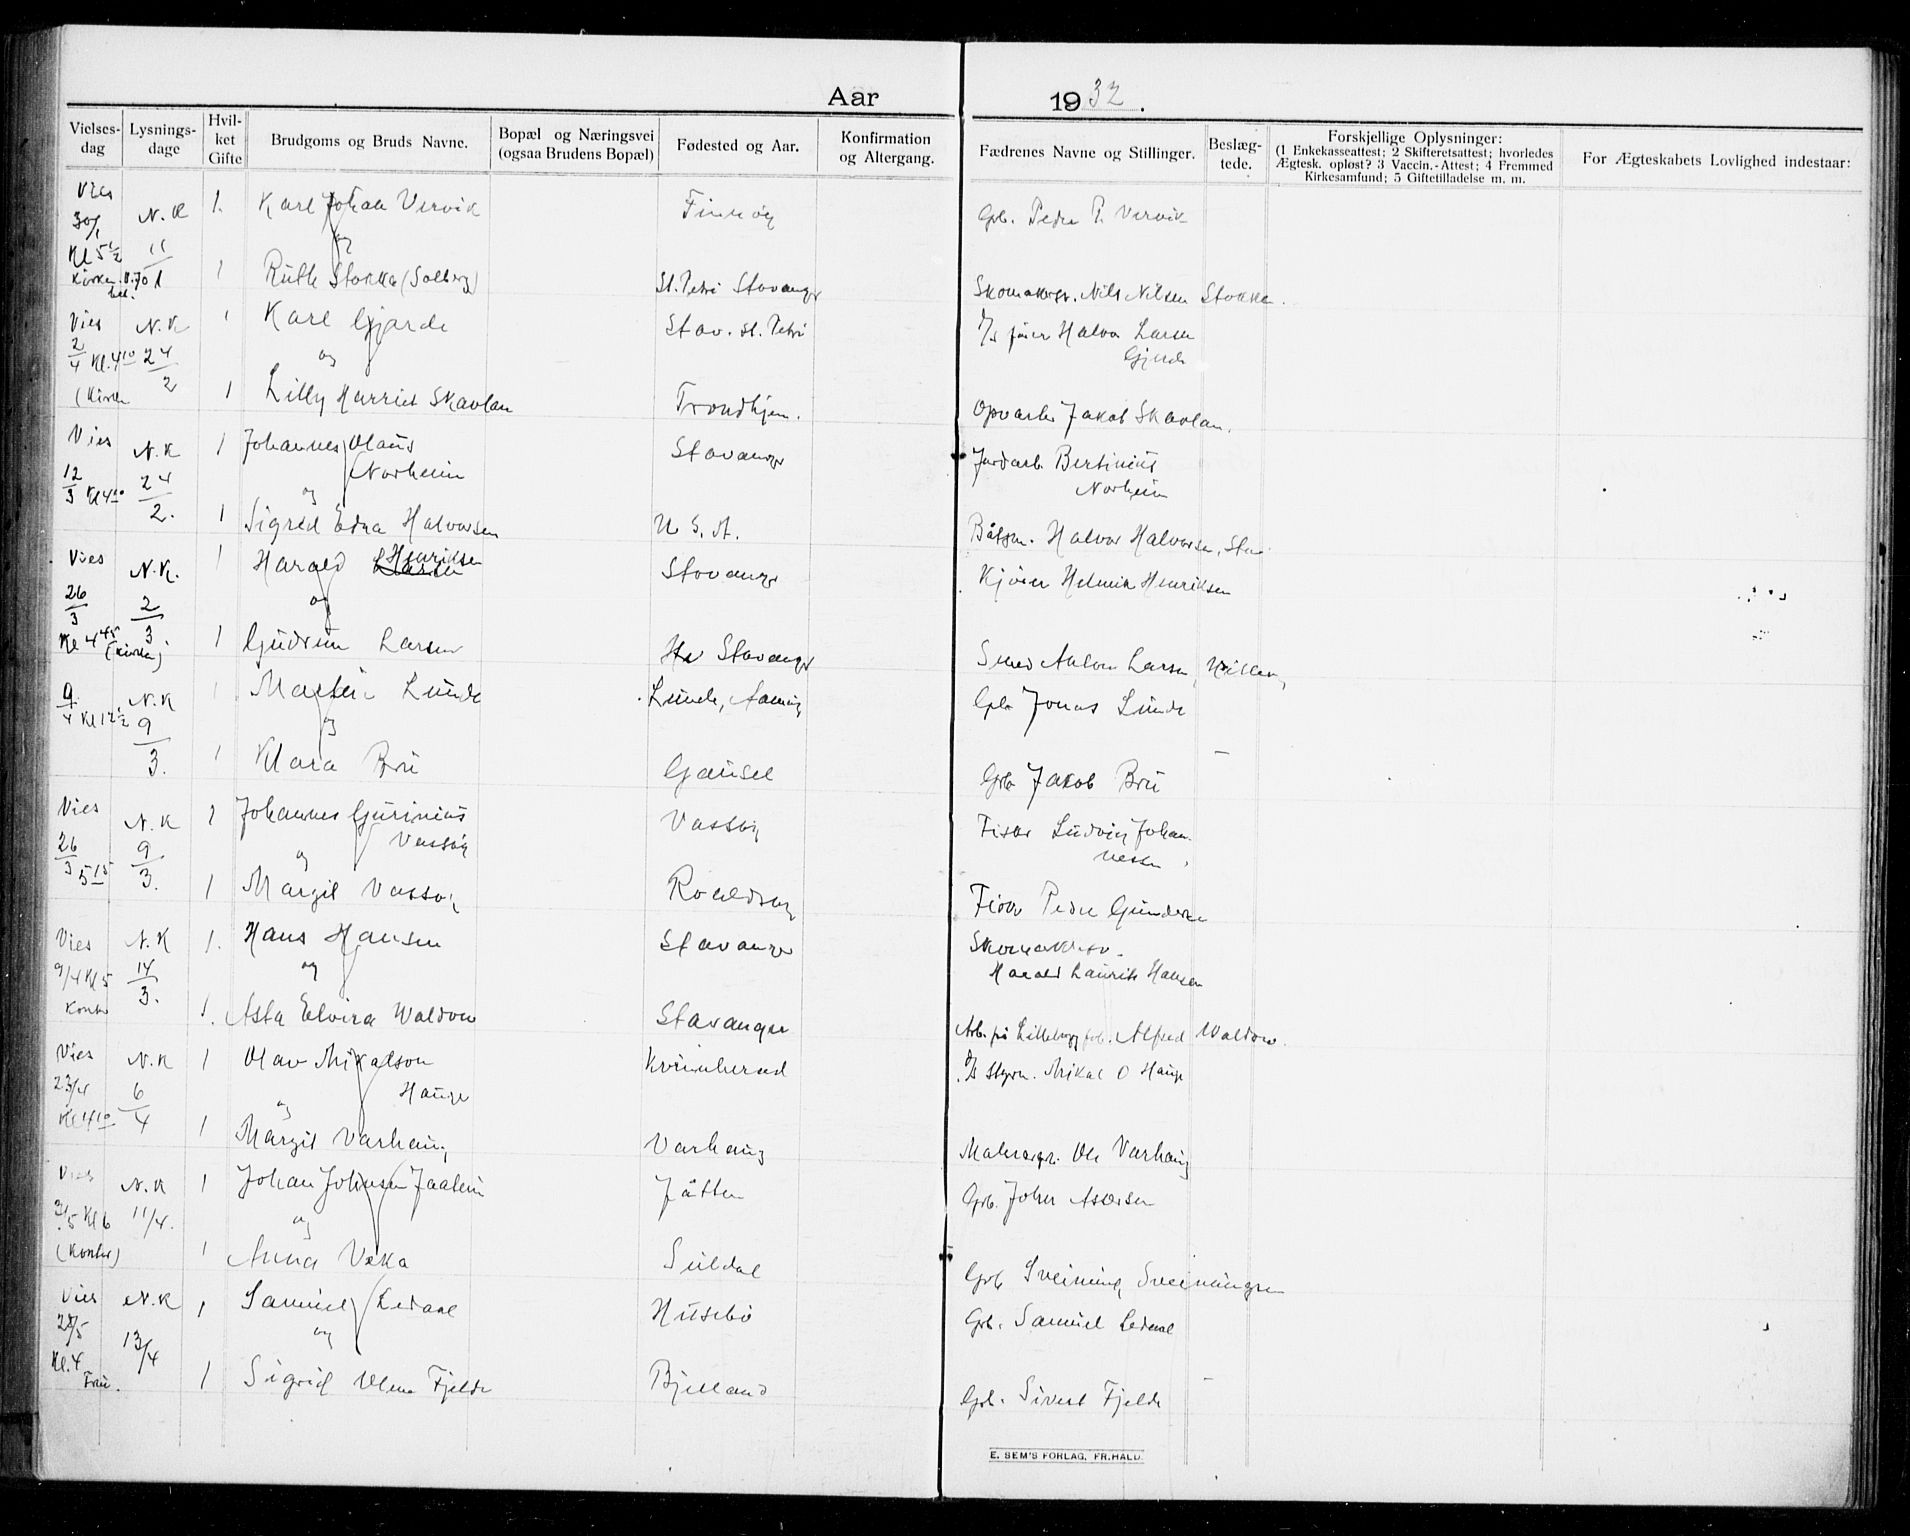 Aar 1932.
Vielses-dag
Lysnings-dage
Hvil-ket Gifte
Brudgoms og Bruds Navne.
Bopæl og Næringsvei (ogsaa Brudens Bopæl)
Fødested og Aar.
Konfirmation og Altergang.
Fædrenes Navne og Stillinger.
Beslæg-tede.
Forskjellige Oplysninger:
(1 Enkekasseattest; 2 Skifteretsattest; hvorledes
Ægtesk. opløst? 3 Vaccin.-Attest; 4 Fremmed
Kirkesamfund; 5 Giftetilladelse m. m.
For Ægteskabets Lovlighed indestaar:
Vies N.K 1. Karl Johan Vervik Finnøy Grb. Peder P. Vervik
30/1 og
Kl 5 1/2 11/1
Kirken 1 Ruth Stokka (Solberg) St. Petri Stavanger Skomakerm. Nils Nilsen Stokka.
Vies N.K 1 Karl Gjerde Stav. St. Petri Halvor Larsen
2/4 Kl. 4 10 24/2 og Gjerde
(Kirken 1 Lilly Harriet Skavlan Trondhjem. Opvarter Jakob Skavlan.
Vies N.K 1 Johannes Olaus Stavanger Jordarb. Bertinius
Norheim Norheim
12/3 Kl 4 10 24/2. og
1 Sigrid Edna Halvorsen U. S. A. Båtsm. Halvor Halvorsen, Stav.
Vies N.K. 1 Harald Henriksen Stavanger Helmik Henriksen
26/3 2/3 og
Kl 4 45 (Kirken) 1 Gudrun Larsen Stavanger Smed Larsen,
9/4 Kl 12 1/2 N.K 1 Martin Lunde Lunde, Grb Jonas Lunde
9/3. og
1 Klara Bru Gausel Grb Jakob Bru
Vies N.K 1 Johannes Gurinius Vassøy Fisker Ludvig Johan-
Vassøy nessen
26/3 5 15 9/3. og
1 Margit Vassøy Roaldsøy Fisker Peder Gundersen
Vies N.K 1. Hans Hansen Stavanger Skomakersv.
9/4 Kl 5 14/3. og Harald Laurits Hansen
Kontor 1. Asta Elvira Waldow Stavanger Arb. på Alfred Waldow.
Vies N.K 1 Olav Mikalson Kvinnherad Styrm. Mikal O Hauge
23/4 6/4 og Hauge
Kl 4 10 1 Margit Varhaug Varhaug Malersv. Ole Varhaug
Vies N.K 1 Johan Johnsen Jaatun Jåtten Grb. John Asersen
Kl 6 11/4. og
(Kontor) 1 Anna Veka Suldal Grb Sveinung Sveinungsen
Vies N.K 1 Samuel Ledaal Husebø Grb. Samuel Ledaal
/5 13/4 og
Kl. 4
Frue. 1 Sigrid Olena Fjelde Bjelland Grb. Sivert Fjelde
E. SEM'S FORLAG, FR.HALD.